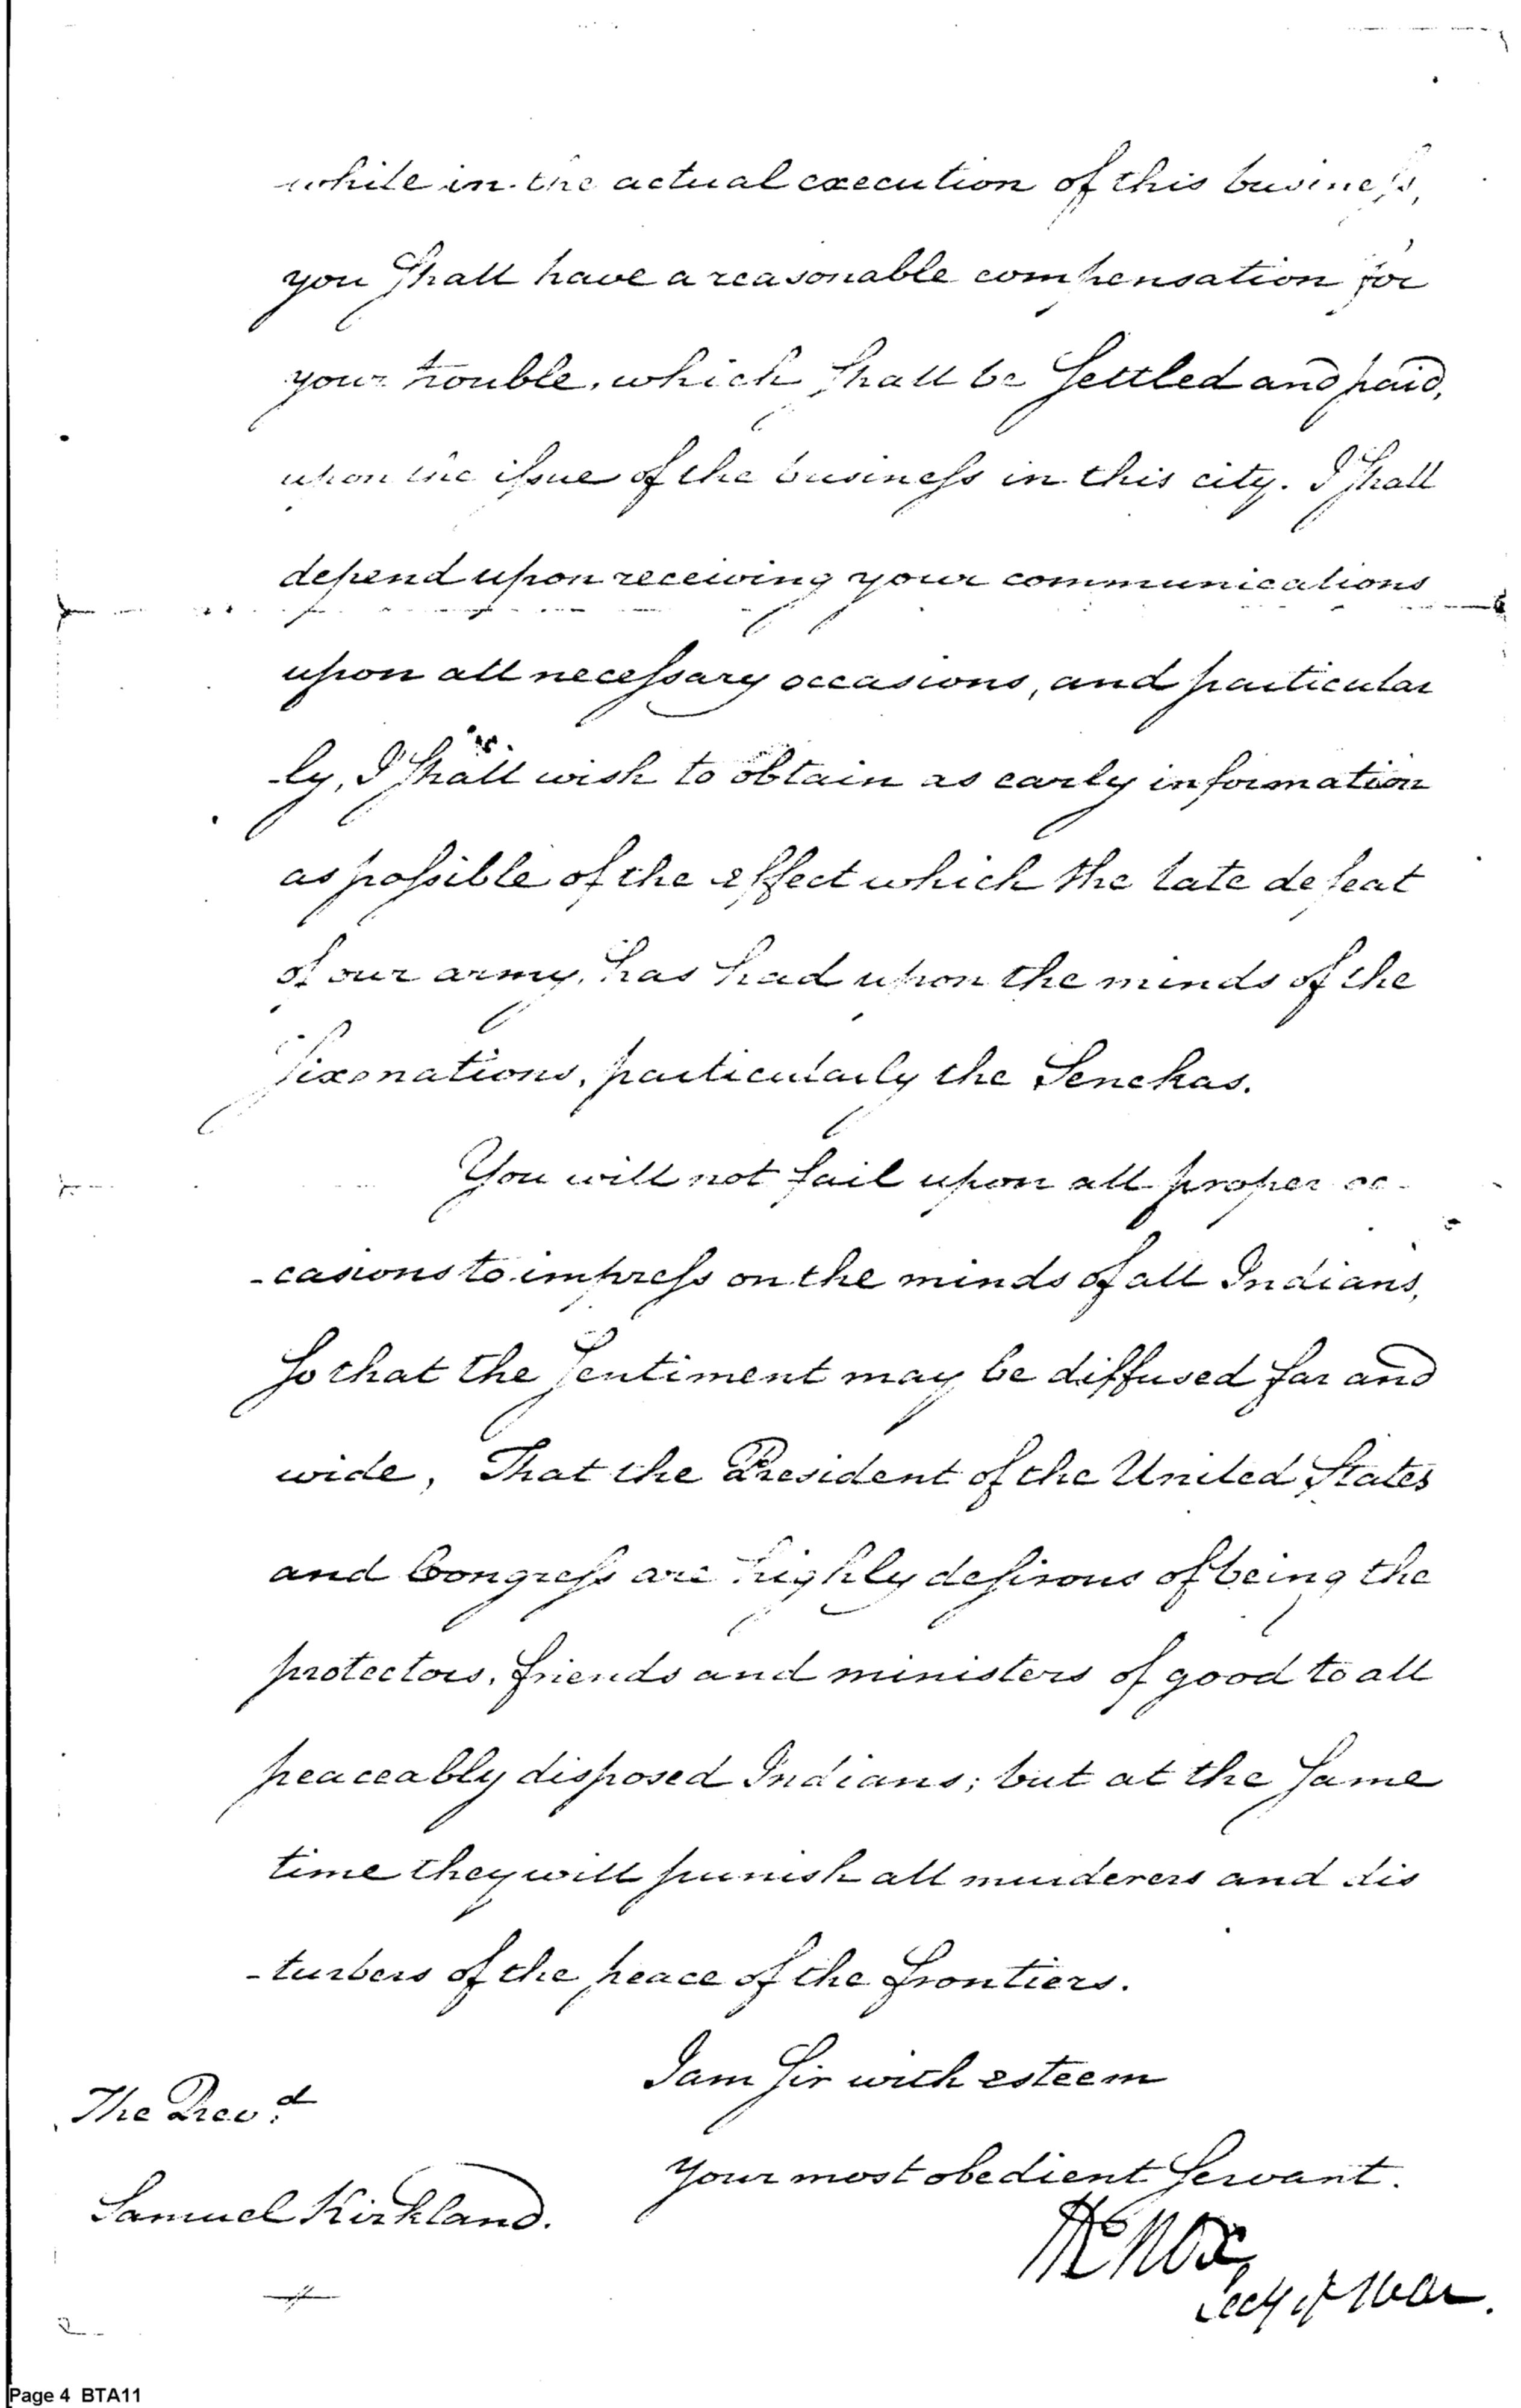 while in the actual execution of this business,
you shall have a reasonable compensation for
your trouble, which shall be settled and paid,
upon the issue of the business in this city. I shall
depend upon receiving your communications
upon all necessary occasions, and particular
-ly, I shall wish to obtain as early information
as possible of the effect which the late defeat
of our army, has had upon the minds of the
Six nations, particularly the Senekas.
You will not fail upon all proper oc-
-casions to impress on the minds of all Indians,
So that the sentiment may be diffused far and
wide, That the President of the United States
and Congress are highly desirous of being the
protectors, friends and ministers of good to all
peaceably disposed Indians; but at the same
time they will punish all murderers and dis
-turbers of the peace of the frontiers.
I am Sir with esteem
The Revd.
Your most obedient Servant.
Samuel Kirkland.
HKnox
Secy of War.
Page 4 BTA11